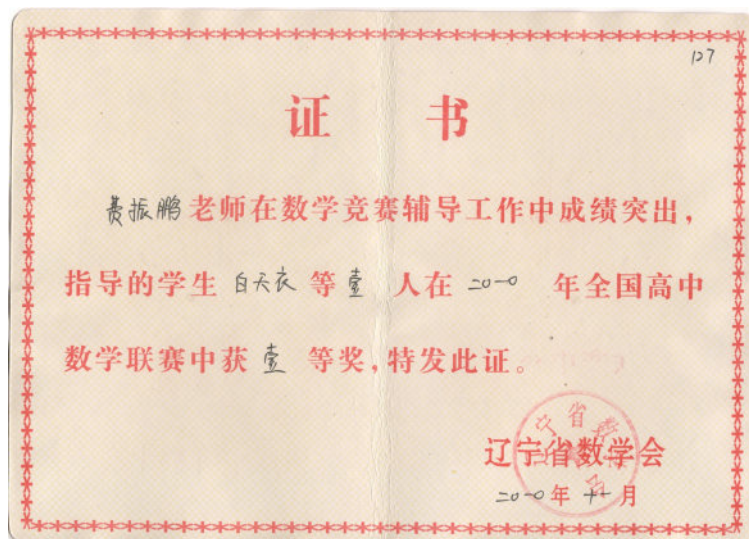 127
证 书
费振鹏老师在数学竞赛辅导工作中成绩突出,
指导的学生 白天衣 等 壹 人在 二〇一〇 年全国高中
数学联赛中获 壹 等奖,特发此证。
辽宁省数学会
二〇一〇年 十一 月